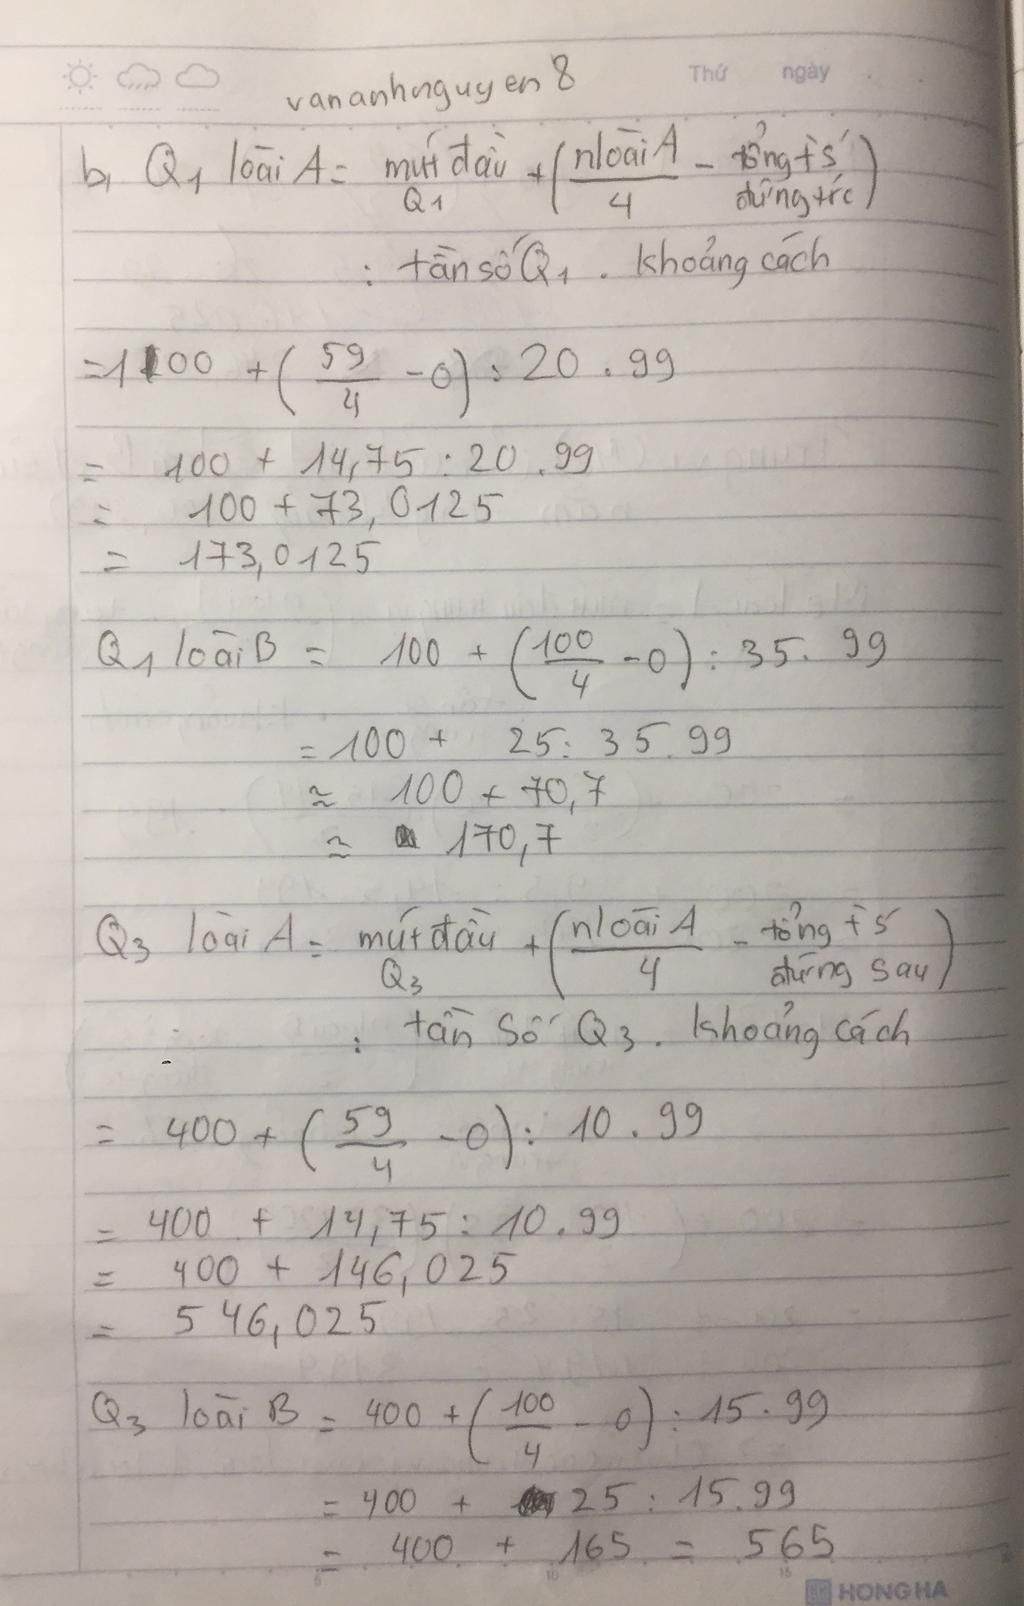 Thứ ngày
vananhnguyen8
b, Q1 loài A = mút đầu Q1 + (n loài A / 4 - tổng t̀ś đứng trc)
: tần số Q1 . khoảng cách
= 100 + (59/4 - 0) : 20 . 99
= 100 + 14,75 : 20 . 99
= 100 + 73,0125
= 173,0125
Q1 loài B = 100 + (100/4 - 0) : 35 . 99
= 100 + 25 : 35 . 99
≈ 100 + 70,7
≈ 170,7
Q3 loài A = mút đầu Q3 + (n loài A / 4 - tổng t̀ś đứng sau)
: tần số Q3 . khoảng cách
= 400 + (59/4 - 0) : 10 . 99
= 400 + 14,75 : 10 . 99
= 400 + 146,025
= 546,025
Q3 loài B = 400 + (100/4 - 0) : 15 . 99
= 400 + 25 : 15 . 99
= 400 + 165 = 565
HONG HA